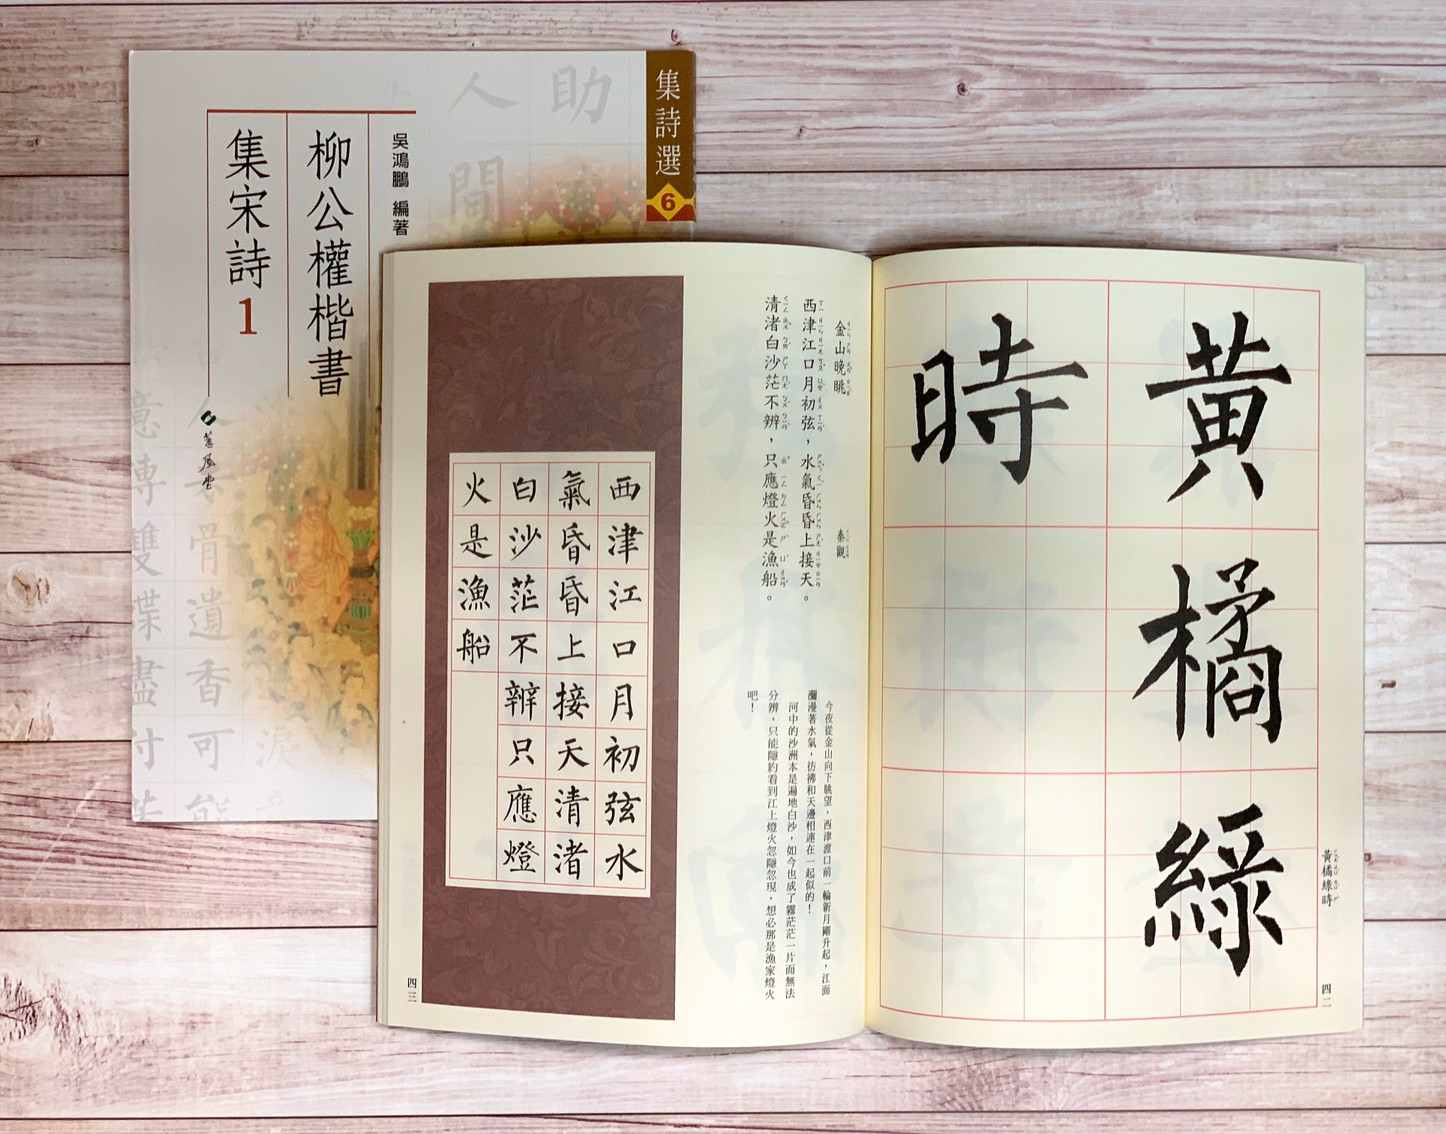 集詩選
6
吳鴻鵬 編著
柳公權楷書
集宋詩1
蕙風堂
助
人間
黃橘綠
時
黃橘綠時
四二
金山晚眺
秦觀
西津江口月初弦，水氣昏昏上接天。
清渚白沙茫不辨，只應燈火是漁船。
今夜從金山向下眺望，西津渡口前一輪新月剛升起，江面
瀰漫著水氣，彷彿和天邊相連在一起似的！
河中的沙洲本是遍地白沙，如今也成了霧茫茫一片而無法
分辨，只能隱約看到江上燈火忽隱忽現，想必那是漁家燈火
吧！
西津江口月初弦水
氣昏昏上接天清渚
白沙茫不辨只應燈
火是漁船
四三